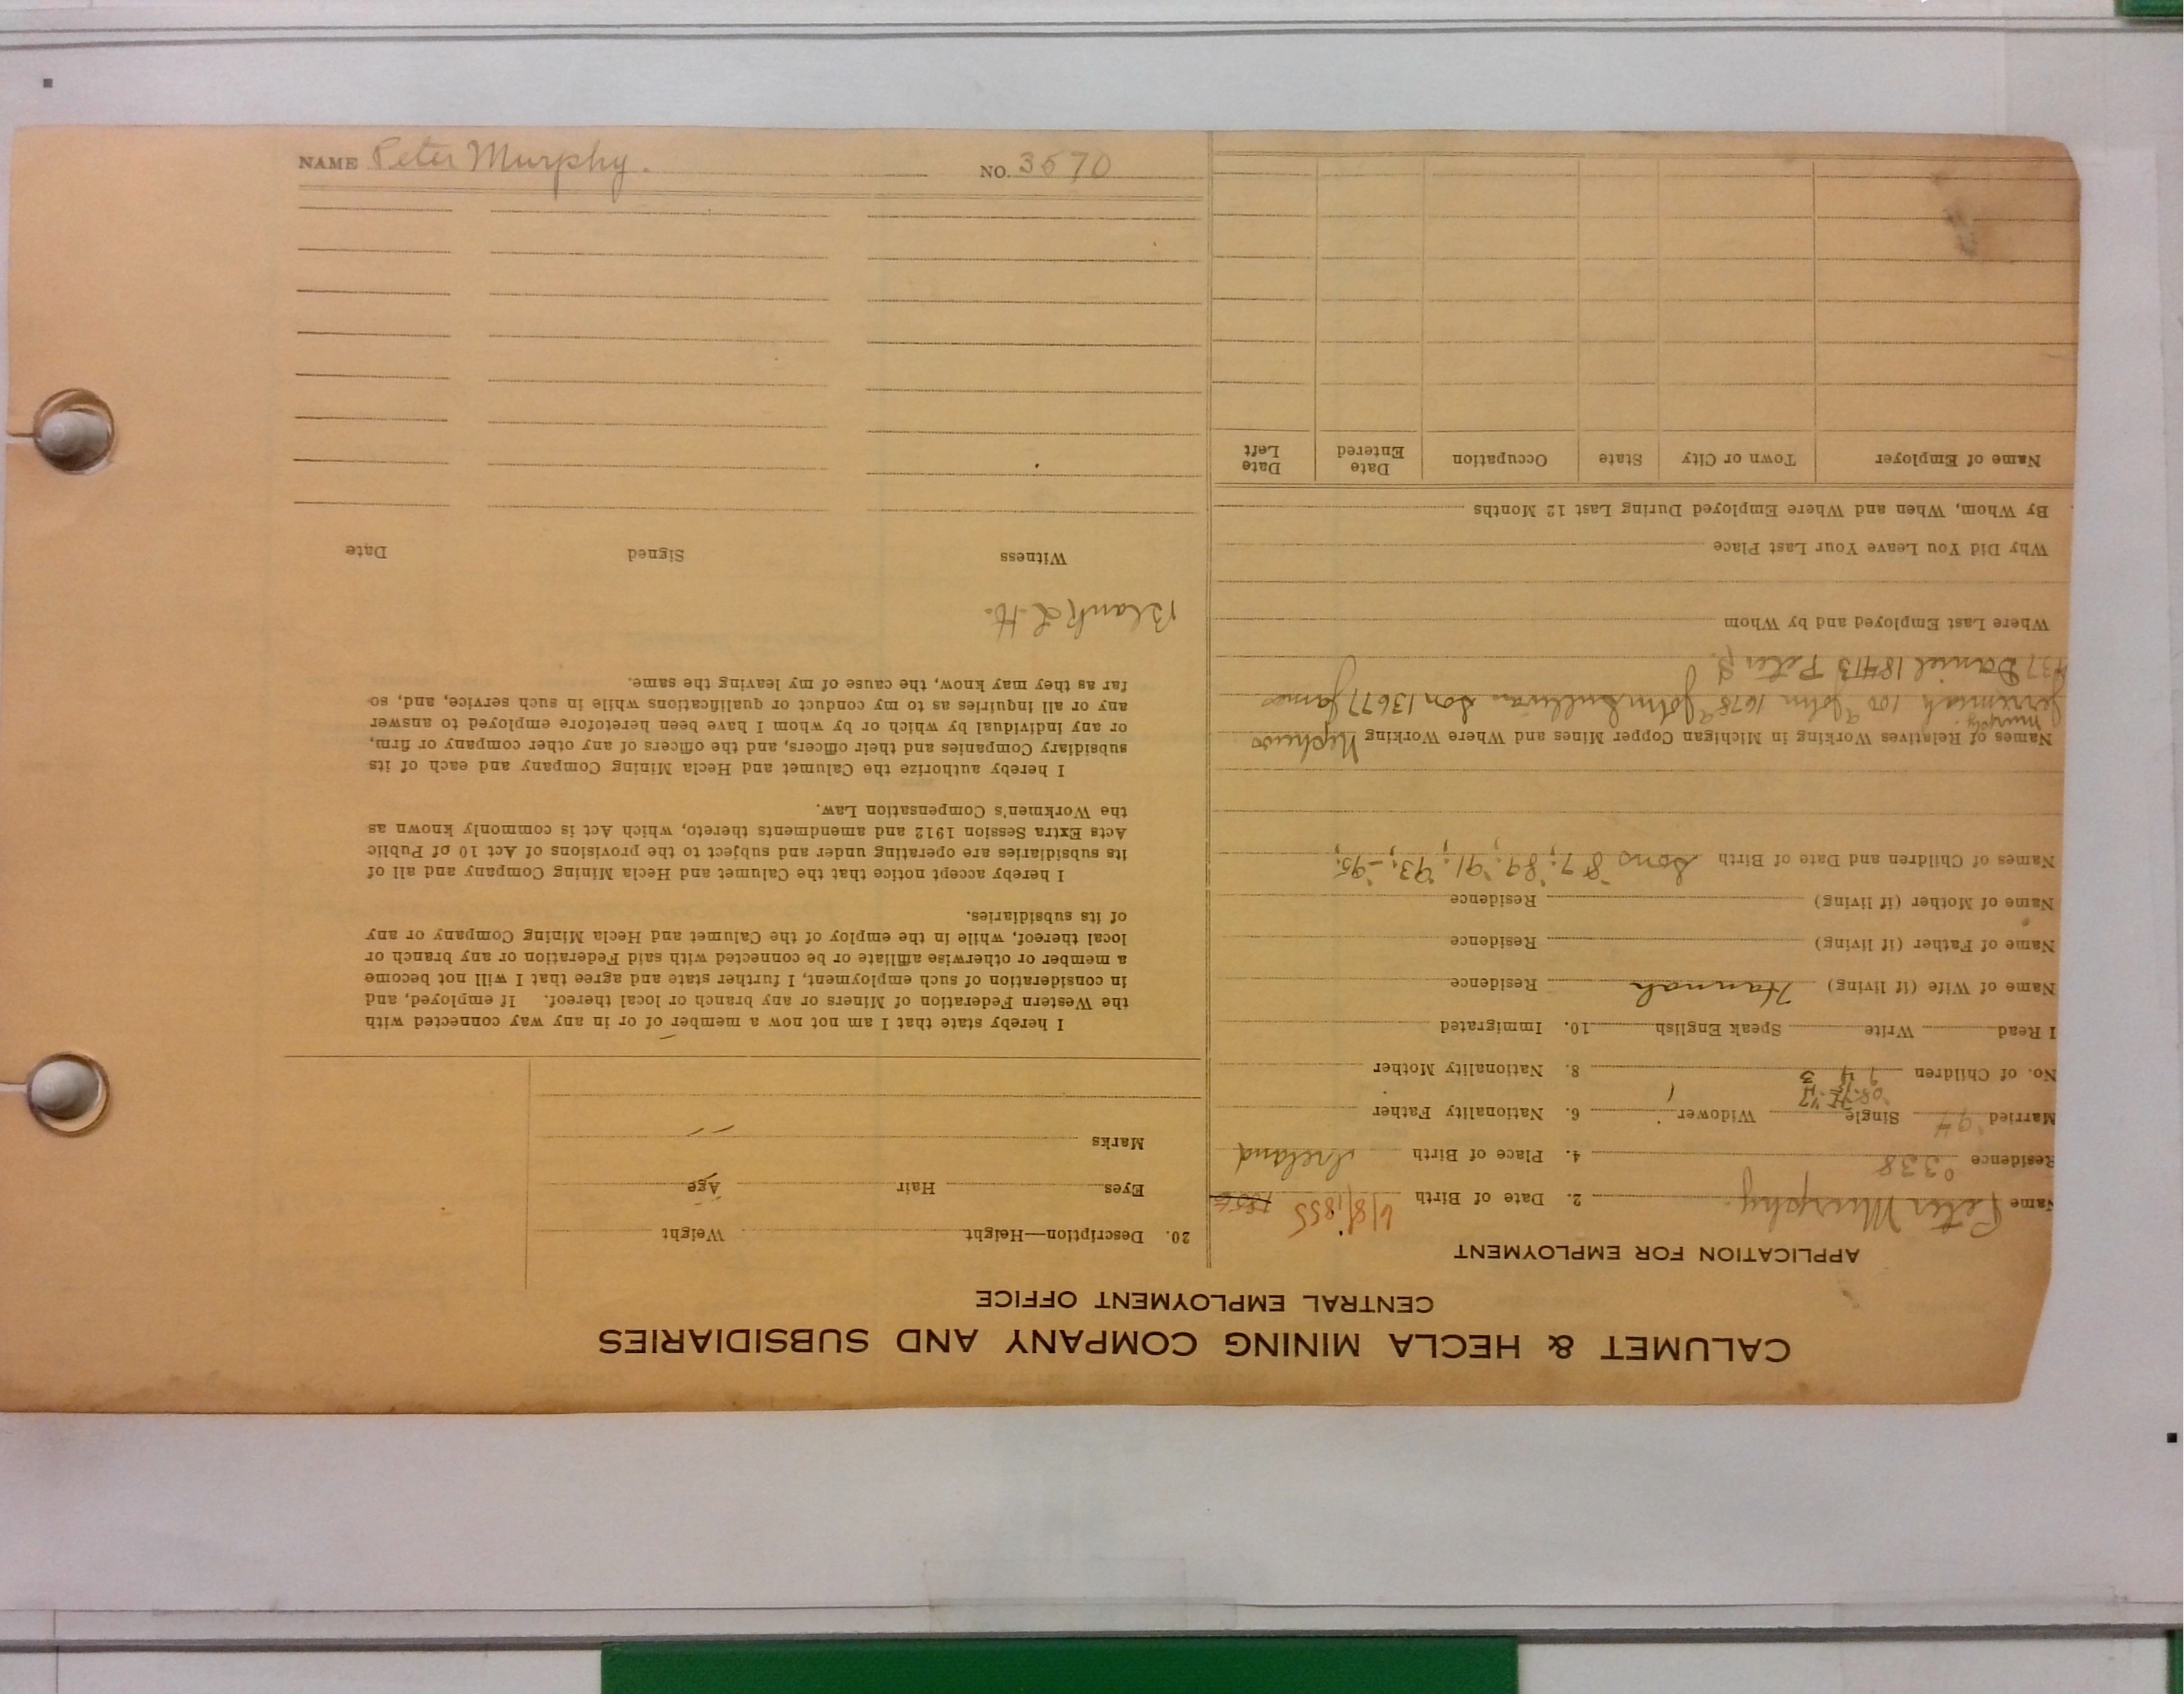 CALUMET & HECLA MINING COMPANY AND SUBSIDIARIES
CENTRAL EMPLOYMENT OFFICE
APPLICATION FOR EMPLOYMENT
Name Peter Murphy. 2. Date of Birth 6/8/1855 1856
Residence 0338 4. Place of Birth Ireland
Married '94 Single Widower 1 6. Nationality Father
'08.
No. of Children 7 4 3 8. Nationality Mother
I Read Write Speak English 10. Immigrated
Name of Wife (if living) Hannah Residence
Name of Father (if living) Residence
Name of Mother (if living) Residence
Names of Children and Date of Birth Sons '87; '89; '91; '93; - '95;
Names of Relatives Working in Michigan Copper Mines and Where Working Nephews
Murphy
Jeremiah 100 John 1678 John Sullivan Son 13677 James
437 Daniel 18413 Peter J.
Where Last Employed and by Whom
Why Did You Leave Your Last Place
By Whom, When and Where Employed During Last 12 Months
Name of Employer Town or City State Occupation Date Entered Date Left
20. Description—Height Weight
Eyes Hair Age
Marks
I hereby state that I am not now a member of or in any way connected with
the Western Federation of Miners or any branch or local thereof. If employed, and
in consideration of such employment, I further state and agree that I will not become
a member or otherwise affiliate or be connected with said Federation or any branch or
local thereof, while in the employ of the Calumet and Hecla Mining Company or any
of its subsidiaries.
I hereby accept notice that the Calumet and Hecla Mining Company and all of
its subsidiaries are operating under and subject to the provisions of Act 10 of Public
Acts Extra Session 1912 and amendments thereto, which Act is commonly known as
the Workmen's Compensation Law.
I hereby authorize the Calumet and Hecla Mining Company and each of its
subsidiary Companies and their officers, and the officers of any other company or firm,
or any individual by which or by whom I have been heretofore employed to answer
any or all inquiries as to my conduct or qualifications while in such service, and, so
far as they may know, the cause of my leaving the same.
Blank L H.
Witness Signed Date
NAME Peter Murphy. NO. 3570